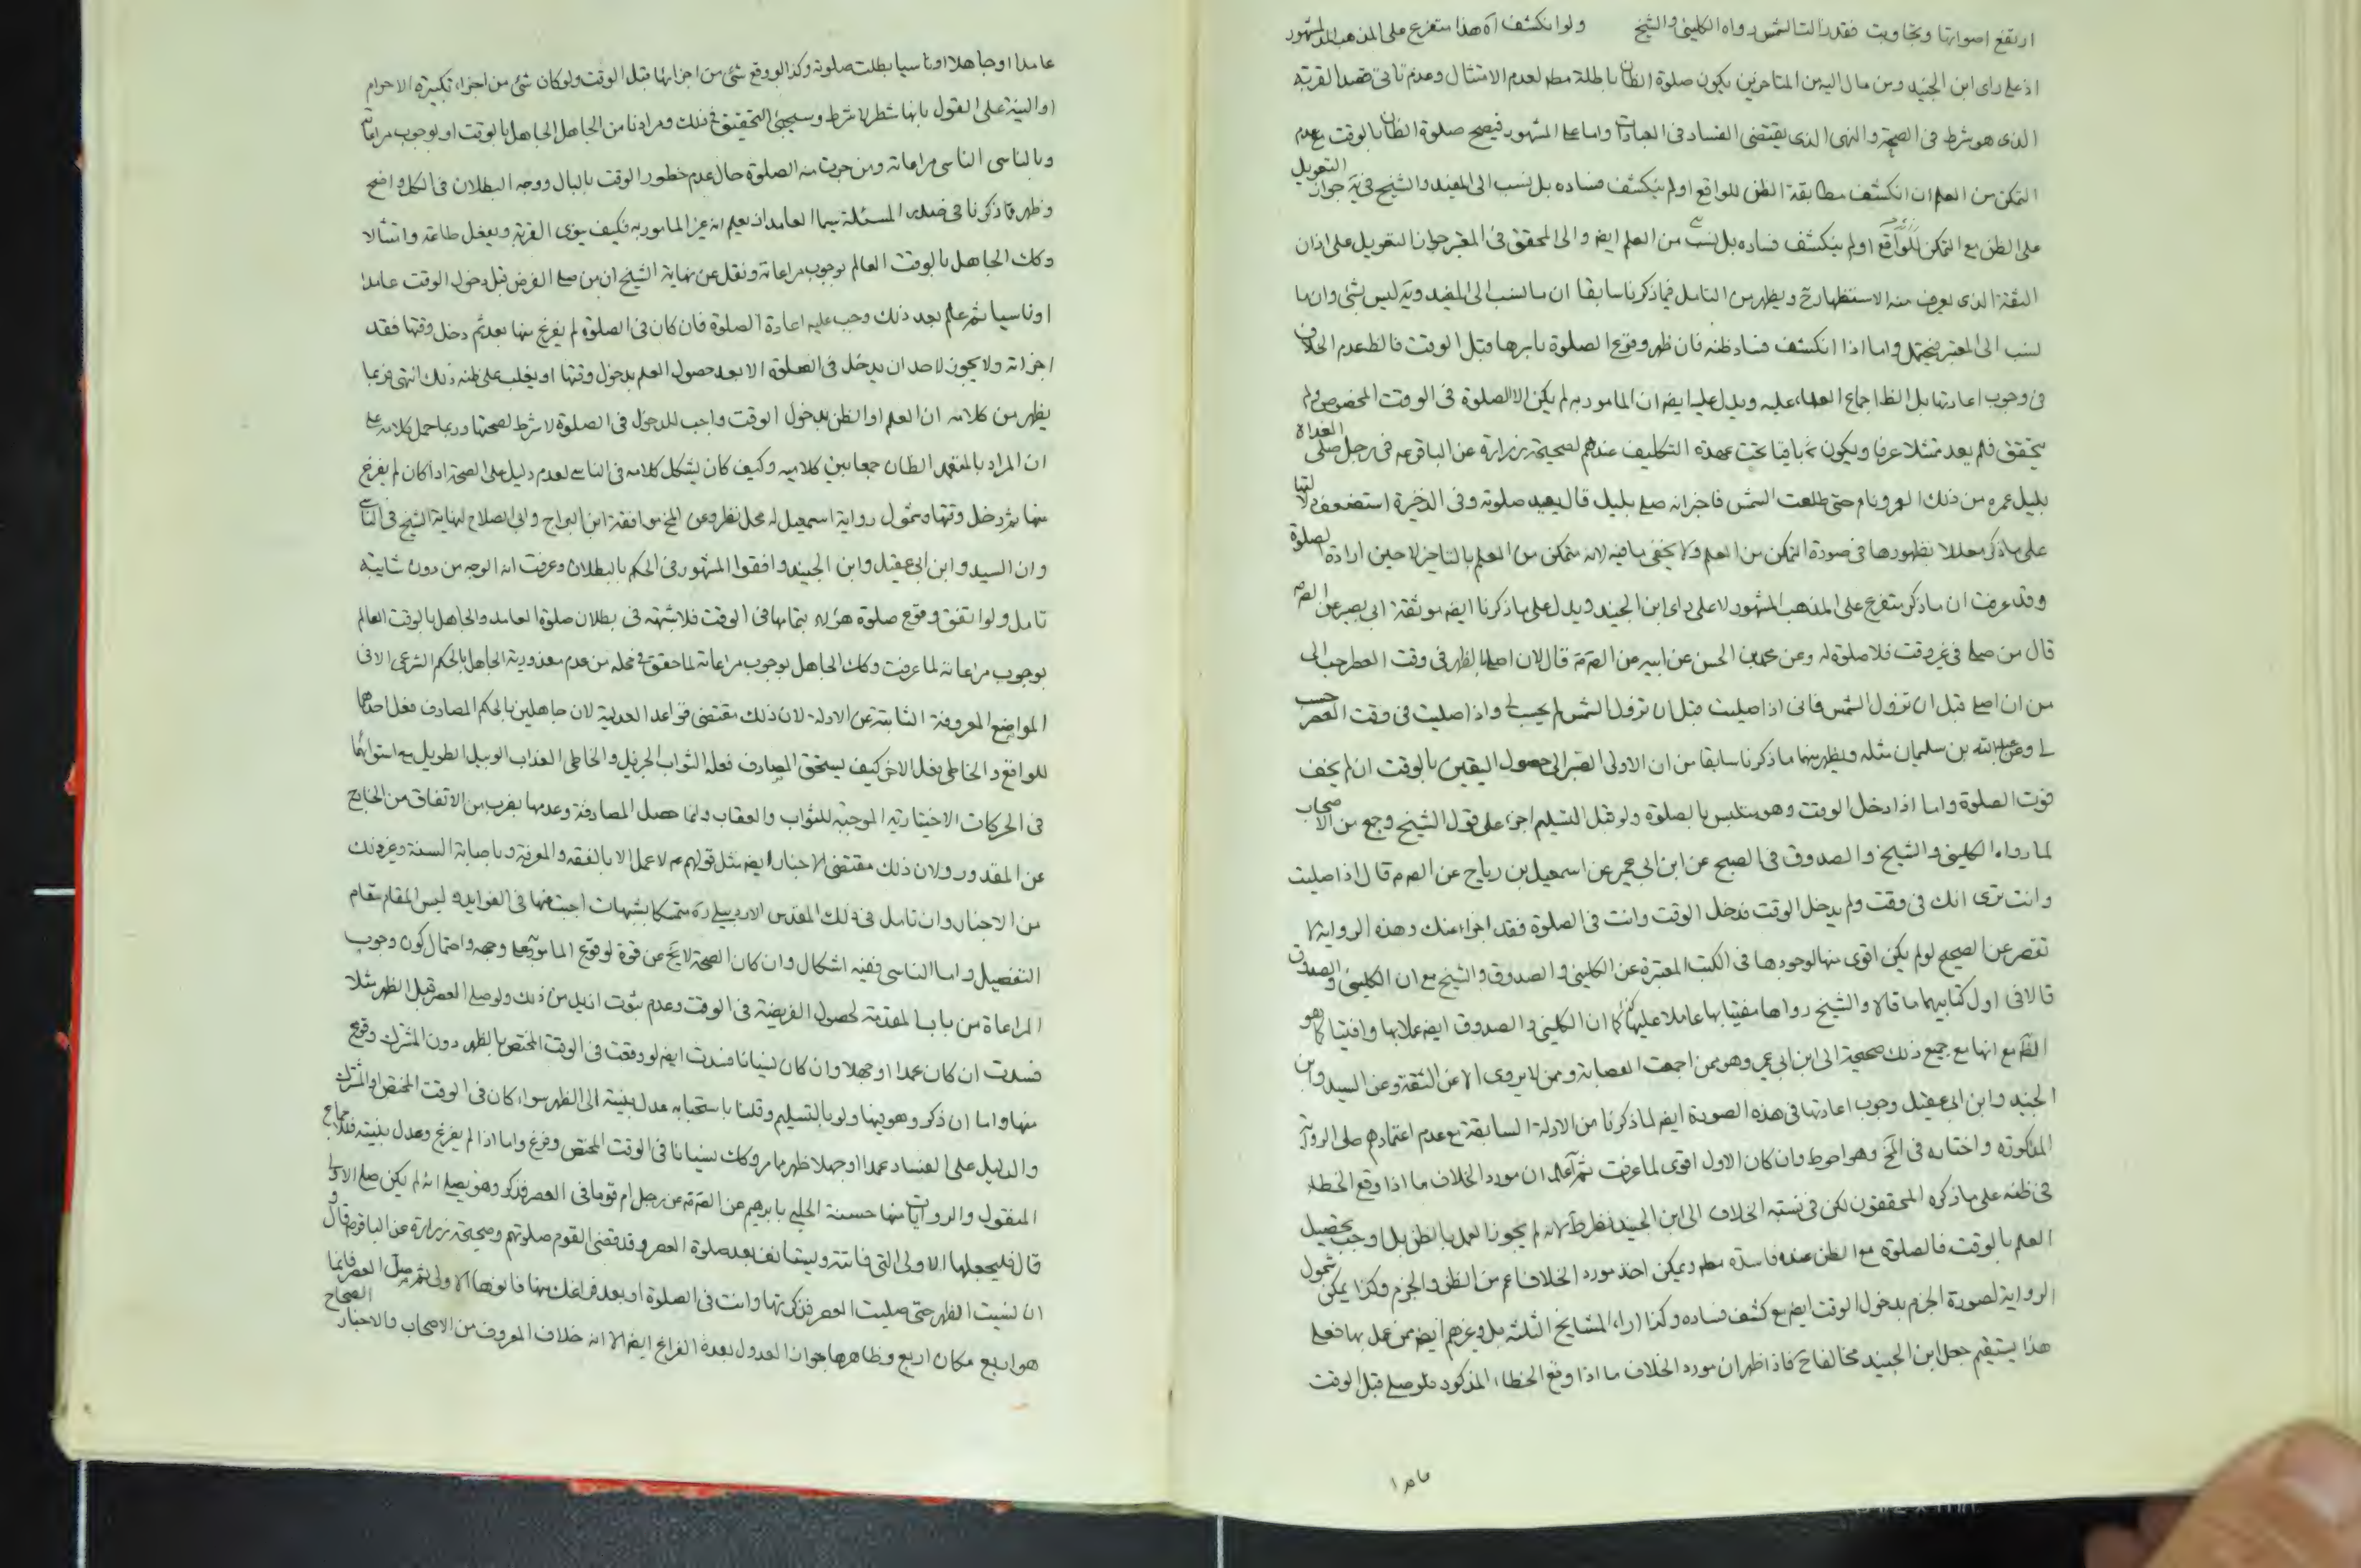 ارتفع اصواتها وتجاوبت فقد زالت الشمس رواه الكليني والشيخ ولو انكشف آه هذا متفرع على المذهب المشهور
اذ على راى ابن الجنيد ومن مال اليه من المتاخرين يكون صلوة الظان باطلة مطم لعدم الامتثال وعدم تاتى قصد القربة
الذى هو شرط فى الصحة والنهى الذى يقتضى الفساد فى العبادات واما على المشهور فيصح صلوة الظان بالوقت مع عدم
التمكن من العلم ان انكشف مطابقة الظن للواقع او لم ينكشف فساده بل نسب الى المفيد والشيخ فى يه جواز التعويل
على الظن مع التمكن من العلم ايضا والى المحقق فى المعتبر جواز التعويل على اذان
الثقة الذى يعرف منه الاستظهار ويظهر من التامل فيما ذكرنا سابقا ان ما نسب الى المفيد ويه ليس بشئ وان ما
نسب الى المعتبر محتمل واما اذا انكشف فساد ظنه فان ظهر وقوع الصلوة باسرها قبل الوقت فالظ عدم الخلاف
فى وجوب اعادتها بل الظ اجماع العلماء عليه ويدل عليه ايضا ان المامور به لم يكن الا الصلوة فى الوقت المخصوص ولم
يتحقق فلم يعد ممتثلا عرفا ويكون باقيا تحت عهدة التكليف عندهم لصحيحة زرارة عن الباقر عه فى رجل صلى الغداة
بليل غره من ذلك القمر ونام حتى طلعت الشمس فاخبر انه صلى بليل قال يعيد صلوته وفى الذخيرة استضعف دلالتها
على ما ذكر معللا بظهورها فى صورة التمكن من العلم ولا يخفى ما فيه لانه متمكن من العلم بالتاخير لا حين ارادة الصلوة
وقد عرفت ان ما ذكر متفرع على المذهب المشهور لا على راى ابن الجنيد ويدل على ما ذكرنا ايضا موثقة ابى بصير عن الصم
قال من صلى فى غير وقت فلا صلوة له وعن محمد بن الحسن عن ابيه عن الصم قال لان اصلى الظهر فى وقت العصر احب الى
من ان اصلى قبل ان تزول الشمس فانى اذا صليت قبل ان تزول الشمس لم يحسب لى واذا صليت فى وقت العصر حسب
لى وعن عبد الله بن سليمان مثله ويظهر منهما ما ذكرنا سابقا من ان الاولى الصبر الى حصول اليقين بالوقت ان لم يخف
فوت الصلوة واما اذا دخل الوقت وهو متلبس بالصلوة ولو قبل التسليم اجزء على قول الشيخ وجمع من الاصحاب
لما رواه الكليني والشيخ والصدوق فى الصحيح عن ابن ابى عمير عن اسمعيل بن رباح عن الصم قال اذا صليت
وانت ترى انك فى وقت ولم يدخل الوقت فدخل الوقت وانت فى الصلوة فقد اجزاء عنك وهذه الرواية لا
تقصر عن الصحيح لو لم يكن اقوى منها لوجودها فى الكتب المعتبرة عن الكليني والصدوق والشيخ مع ان الكليني والصدوق
قالا فى اول كتابيهما ما قالا والشيخ رواها مفتيا بها عاملا عليها كما ان الكليني والصدوق ايضا عملا بها وافتيا كما هو
الظ مع انها مع جميع ذلك صحيحة الى ابن ابى عمير وهو ممن اجمعت العصابة وممن لا يروى الا عن الثقة وعن السيد وابن
الجنيد وابن ابى عقيل وجوب اعادتها فى هذه الصورة ايضا لما ذكرنا من الادلة السابقة مع عدم اعتمادهم على الرواية
المذكورة واختاره فى الخ وهو احوط وان كان الاول اقوى لما عرفت ثم اعلم ان مورد الخلاف ما اذا وقع الخطاء
فى ظنه على ما ذكره المحققون لكن فى نسبة الخلاف الى ابن الجنيد نظر ظ لانه لم يجوز العمل بالظن بل اوجب تحصيل
العلم بالوقت فالصلوة مع الظن عنده فاسدة مطم ويمكن اخذ مورد الخلاف اعم من الظن والجزم وكذا يمكن شمول
الرواية لصورة الجزم بدخول الوقت ايضا مع كشف فساده وكذا اراء المشايخ الثلثة بل وغيرهم ايضا ممن عمل بها فعلى
هذا يستقيم جعل ابن الجنيد مخالفا ح فاذا ظهر ان مورد الخلاف ما اذا وقع الخطاء المذكور فلو صلى قبل الوقت
عامدا
عامدا او جاهلا او ناسيا بطلت صلوته وكذا لو وقع شئ من اجزائها قبل الوقت ولو كان شئ من اجزاء تكبيرة الاحرام
او النية على القول بانها شطر لا شرط وسيجئ التحقيق فى ذلك ومرادنا من الجاهل الجاهل بالوقت او بوجوب مراعاته
وبالناسى الناسى مراعاته ومن جرت منه الصلوة حال عدم خطور الوقت بالبال ووجه البطلان فى الكل واضح
وظهر مما ذكرنا فى صدر المسئلة سيما العامد اذ يعلم انه غير المامور به فكيف ينوى القربة ويفعل طاعة وامتثالا
وكذا الجاهل بالوقت العالم بوجوب مراعاته ونقل عن نهاية الشيخ ان من صلى الفرض قبل دخول الوقت عامدا
او ناسيا ثم علم بعد ذلك وجب عليه اعادة الصلوة فان كان فى الصلوة لم يفرغ منها بعد ثم دخل وقتها فقد
اجزاته ولا يجوز لاحد ان يدخل فى الصلوة الا بعد حصول العلم بدخول وقتها او يغلب على ظنه ذلك انتهى فربما
يظهر من كلامه ان العلم او الظن بدخول الوقت واجب للدخول فى الصلوة لا شرط لصحتها وربما حمل كلامه على
ان المراد بالمتعمد الظان جمعا بين كلاميه وكيف كان يشكل كلامه فى الناسى لعدم دليل على الصحة اذا كان لم يفرغ
منها ثم دخل وقتها وشمول رواية اسمعيل له محل نظر وعن الخ موافقة ابن البراج وابى الصلاح لنهاية الشيخ فى الناسى
وان السيد وابن ابى عقيل وابن الجنيد وافقوا المشهور فى الحكم بالبطلان وعرفت انه الوجه من دون شائبة
تامل ولو اتفق وقوع صلوة هؤلاء بتمامها فى الوقت فلا شبهة فى بطلان صلوة العامد والجاهل بالوقت العالم
بوجوب مراعاته لما عرفت وكذا الجاهل بوجوب مراعاته لما حقق فى محله من عدم معذورية الجاهل بالحكم الشرعى الا فى
المواضع المعروفة الثابتة عن الادلة لان ذلك مقتضى قواعد العدلية لان جاهلين بالحكم المصادف فعل احدهما
للواقع والخاطى بفعل الاخر كيف يستحق المصادف فعله الثواب الجزيل والخاطى العذاب الوبيل الطويل مع استوائهما
فى الحركات الاختيارية الموجبة للثواب والعقاب وانما حصل المصادفة وعدمها بضرب من الاتفاق من الخارج
عن المقدور ولان ذلك مقتضى الاخبار ايضا مثل قولهم عه لا عمل الا بالفقه والمعرفة وباصابة السنة وغير ذلك
من الاخبار وان تامل فى ذلك المقدس الاردبيلى ره متمسكا بشبهات اجبت عنها فى الفوايد وليس المقام مقام
التفصيل واما الناسى ففيه اشكال وان كان الصحة لا يخ عن قوة لوقوع المامور به على وجهه واحتمال كون وجوب
المراعاة من باب المقدمة لحصول الفريضة فى الوقت وعدم ثبوت ازيد من ذلك ولو صلى العصر قبل الظهر مثلا
فسدت ان كان عمدا او جهلا وان كان نسيانا فسدت ايضا لو وقعت فى الوقت المختص بالظهر دون المشترك وقوع
منها واما ان ذكر وهو فيها ولو بالتسليم وقلنا باستحبابه عدل بنيته الى الظهر سواء كان فى الوقت المختص او المشترك
والدليل على الفساد عمدا او جهلا ظهر مما مر وكذا نسيانا فى الوقت المختص وفرغ واما اذا لم يفرغ وعدل بنيته فللاجماع
المنقول والروايات منها حسنة الحلبى بابرهيم عن الصم عن رجل ام قوما فى العصر فذكر وهو يصلى انه لم يكن صلى الاولى
قال فليجعلها الاولى التى فاتته ويستانف بعد صلوة العصر وقد قضى القوم صلوتهم وصحيحة زرارة عن الباقر عه قال
ان نسيت الظهر حتى صليت العصر فذكرتها وانت فى الصلوة او بعد فراغك منها فانوها الاولى ثم صل العصر فانما
هو اربع مكان اربع وظاهرها جواز العدول بعد الفراغ ايضا الا انه خلاف المعروف من الاصحاب والاخبار الصحاح